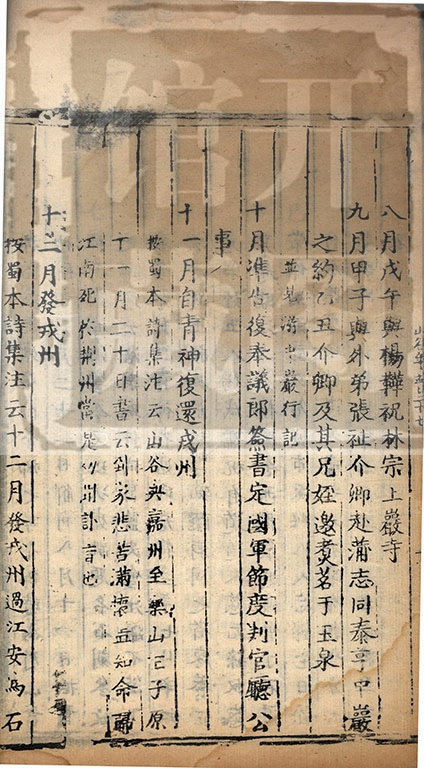 八月戊午與楊韡祝林宗上巖寺
九月甲子與外弟張祉介卿赴蒲志同秦亨中巖
之約乙丑介卿及其兄姪邀煑茗于玉泉
並見游中巖行記
十月準告復奉議郎簽書定國軍節度判官聽公
事
十一月自青神復還戎州
按蜀本詩集注云山谷與嘉州至樂山王子厚
十一月二十日書云到家悲苦滿懷益知命歸
江南死於荆州當是此訃音也
十二月發戎州
按蜀本詩集注云十二月發戎州過江安為石